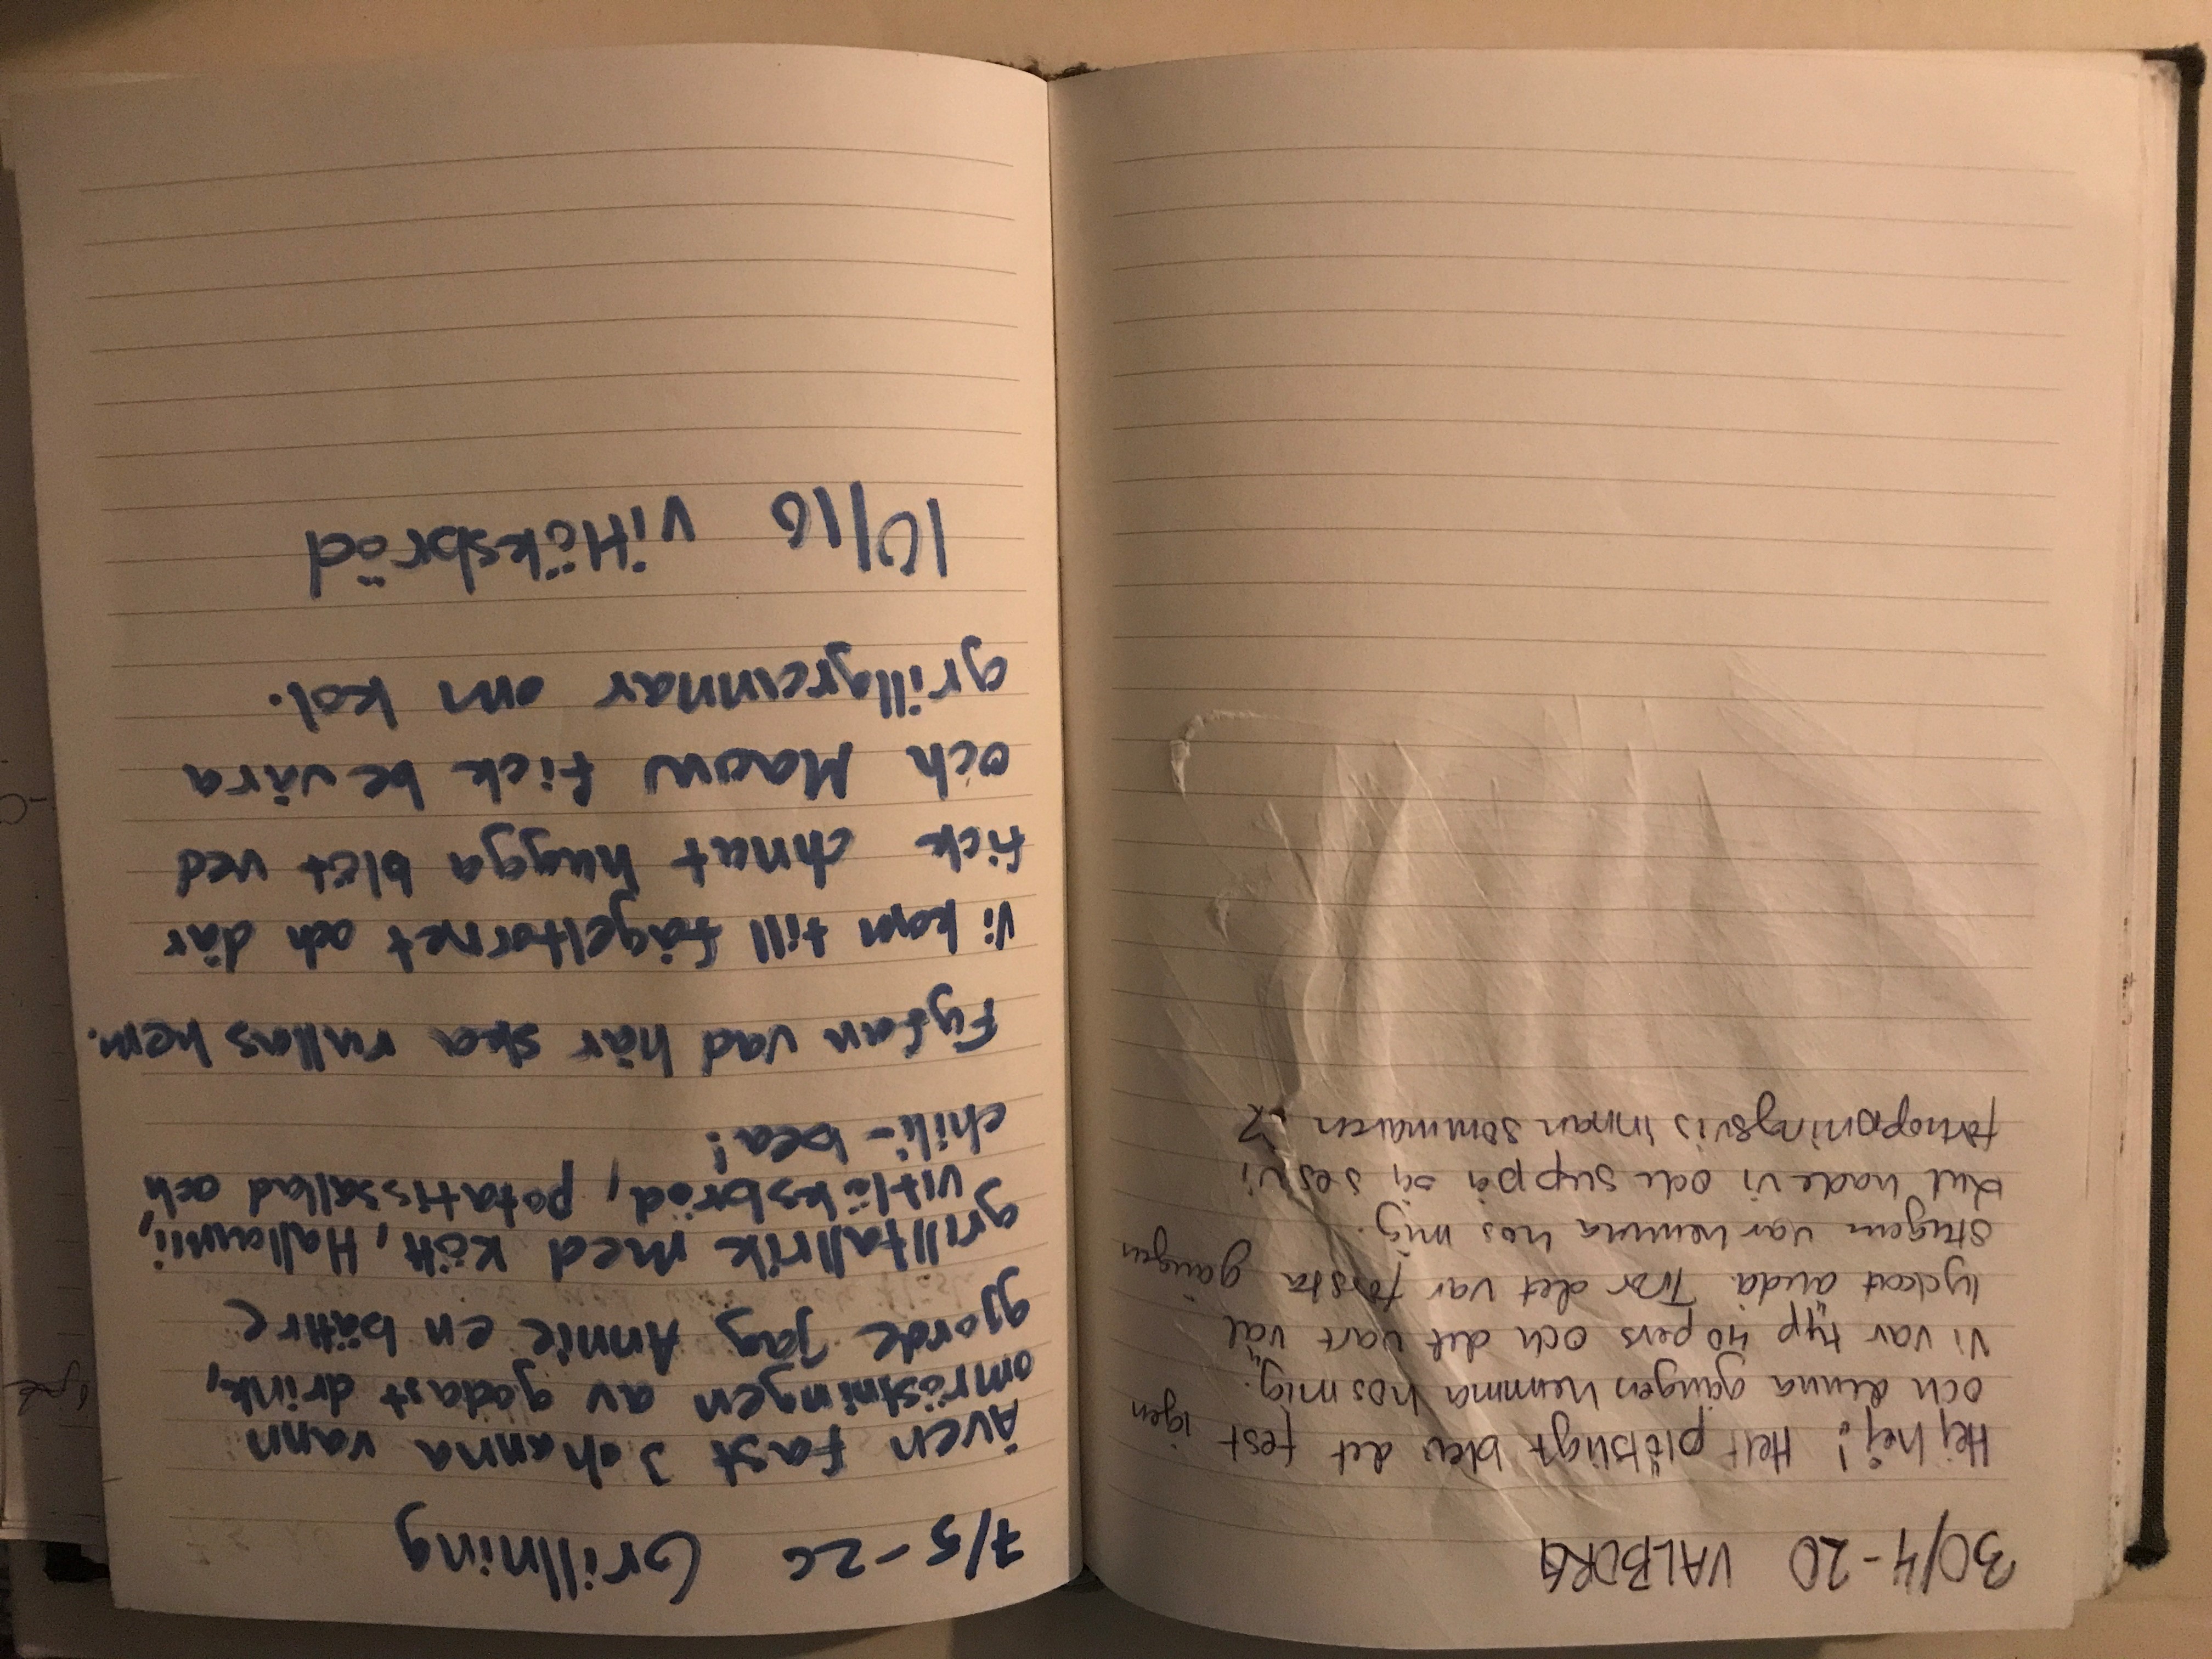 30/4-20 VALBORG
Hej hej! Helt plötsligt blev det fest igen
och denna gången hemma hos mig.
Vi var typ 40 pers och det vart väl
lyckat ändå. Tror det var första gången
stugan var hemma hos mig.
Kul hade vi och suppa så ses vi
förhoppningsvis innan sommaren
7/5-20 Grillning
Även fast Johanna vann
omröstningen av godast drink,
gjorde jag Annie en bättre
grilltallrik med kött, Halloumi,
vitlöksbröd, potatissallad och
chili-bea!
Fyfan vad här ska rullas hem.
Vi kom till fågeltornet och där
fick chnut hugga blöt ved
och Maow fick be våra
grillgrannar om kol.
10/10 vitlöksbröd